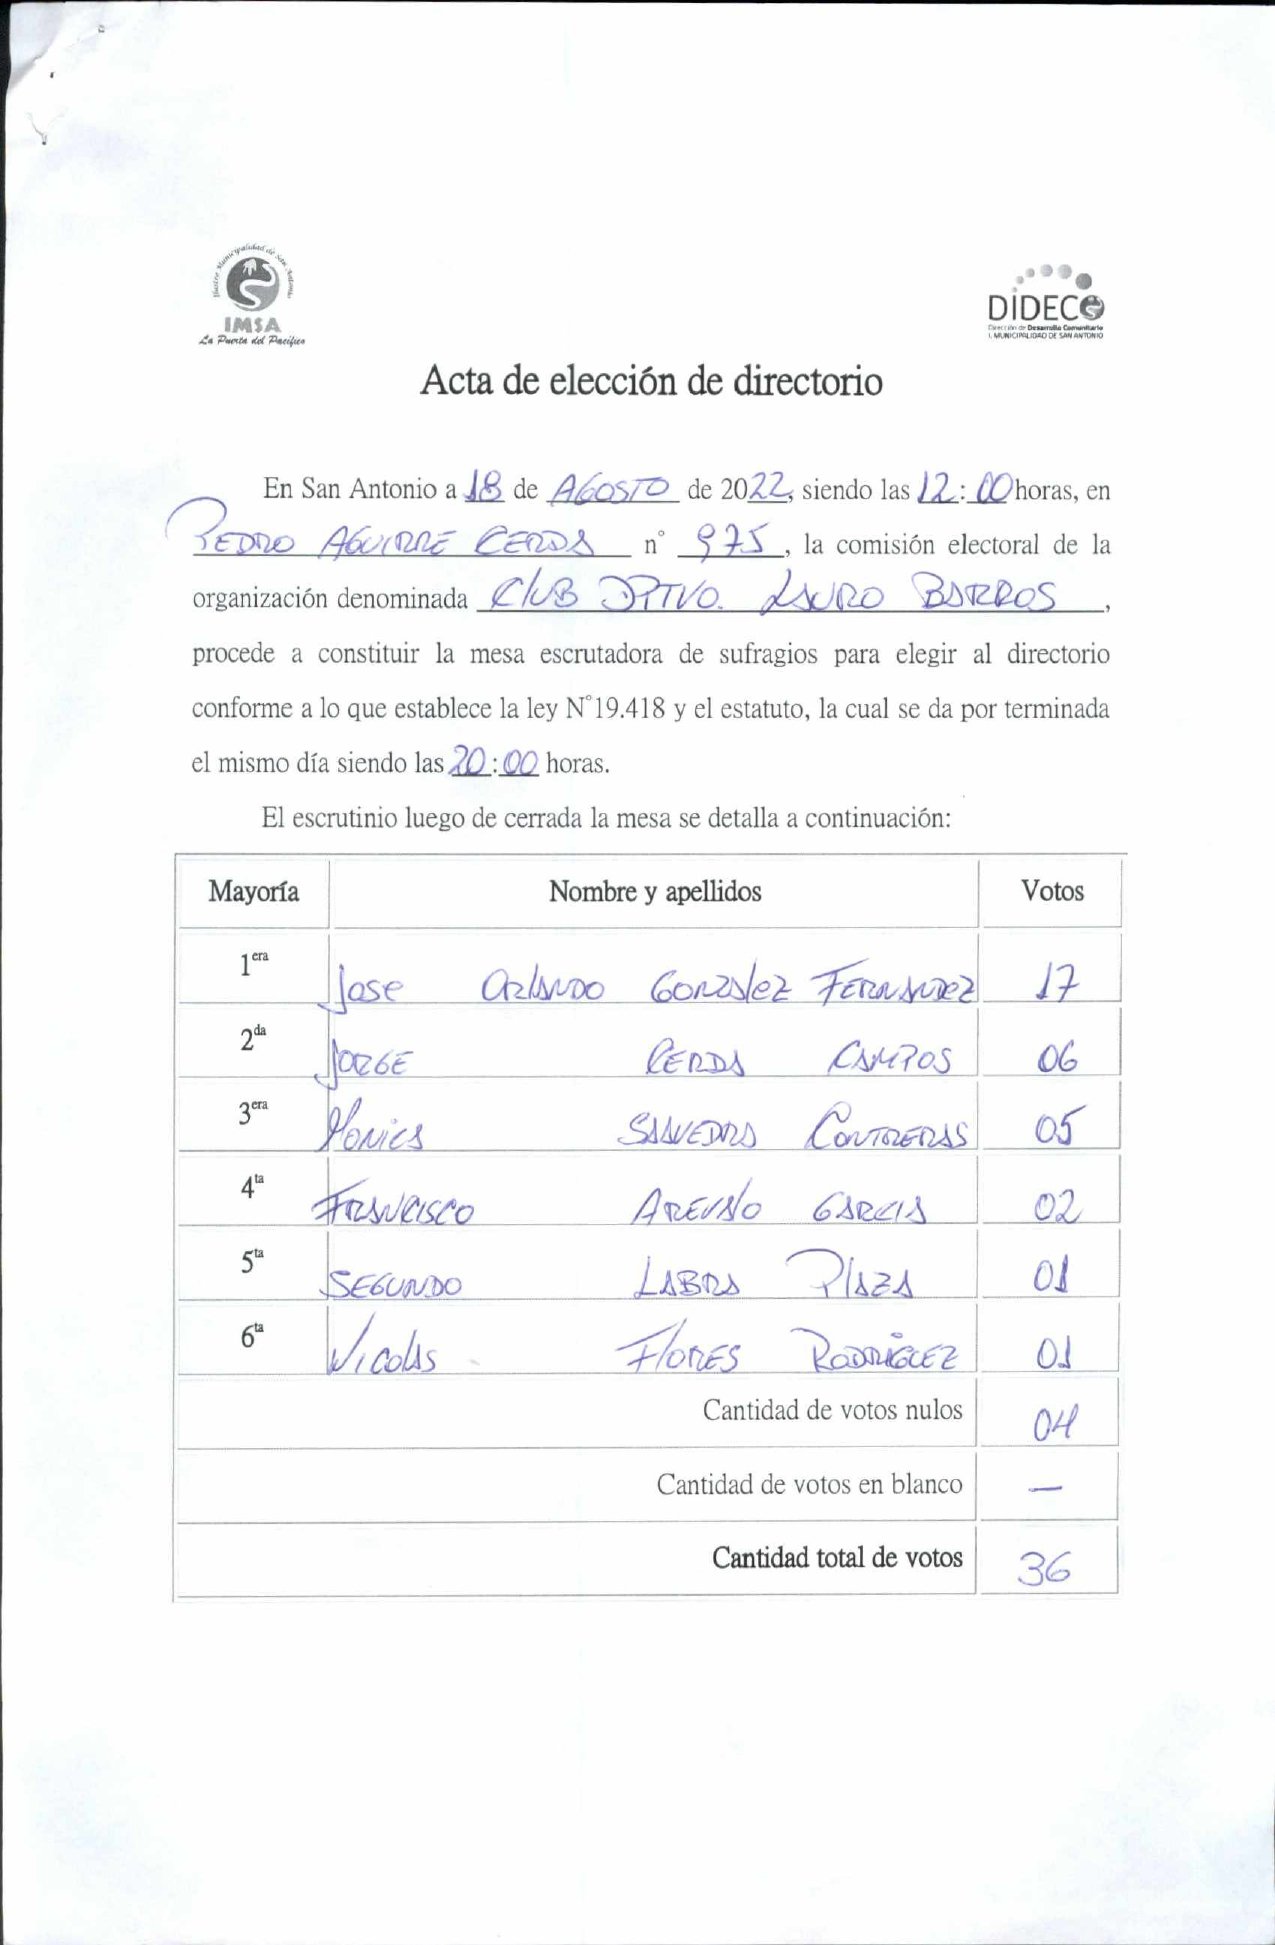 Ilustre Municipalidad de San Antonio
IMSA
La Puerta del Pacífico
DIDECO
Dirección de Desarrollo Comunitario
I. MUNICIPALIDAD DE SAN ANTONIO
Acta de elección de directorio
En San Antonio a 18 de AGOSTO de 2022, siendo las 12:00 horas, en
PEDRO AGUIRRE CERDA n° 975, la comisión electoral de la
organización denominada CLUB DPTVO. LAURO BARROS,
procede a constituir la mesa escrutadora de sufragios para elegir al directorio
conforme a lo que establece la ley N°19.418 y el estatuto, la cual se da por terminada
el mismo día siendo las 20:00 horas.
El escrutinio luego de cerrada la mesa se detalla a continuación:
Mayoría Nombre y apellidos Votos
1era Jose Orlando Gonzalez Fernandez 17
2da JORGE CERDA CAMPOS 06
3era Monica SAAVEDRA CONTRERAS 05
4ta FRANCISCO AREVALO GARCIA 02
5ta SEGUNDO LABRA PLAZA 01
6ta Nicolas FLORES RODRIGUEZ 01
Cantidad de votos nulos 04
Cantidad de votos en blanco —
Cantidad total de votos 36